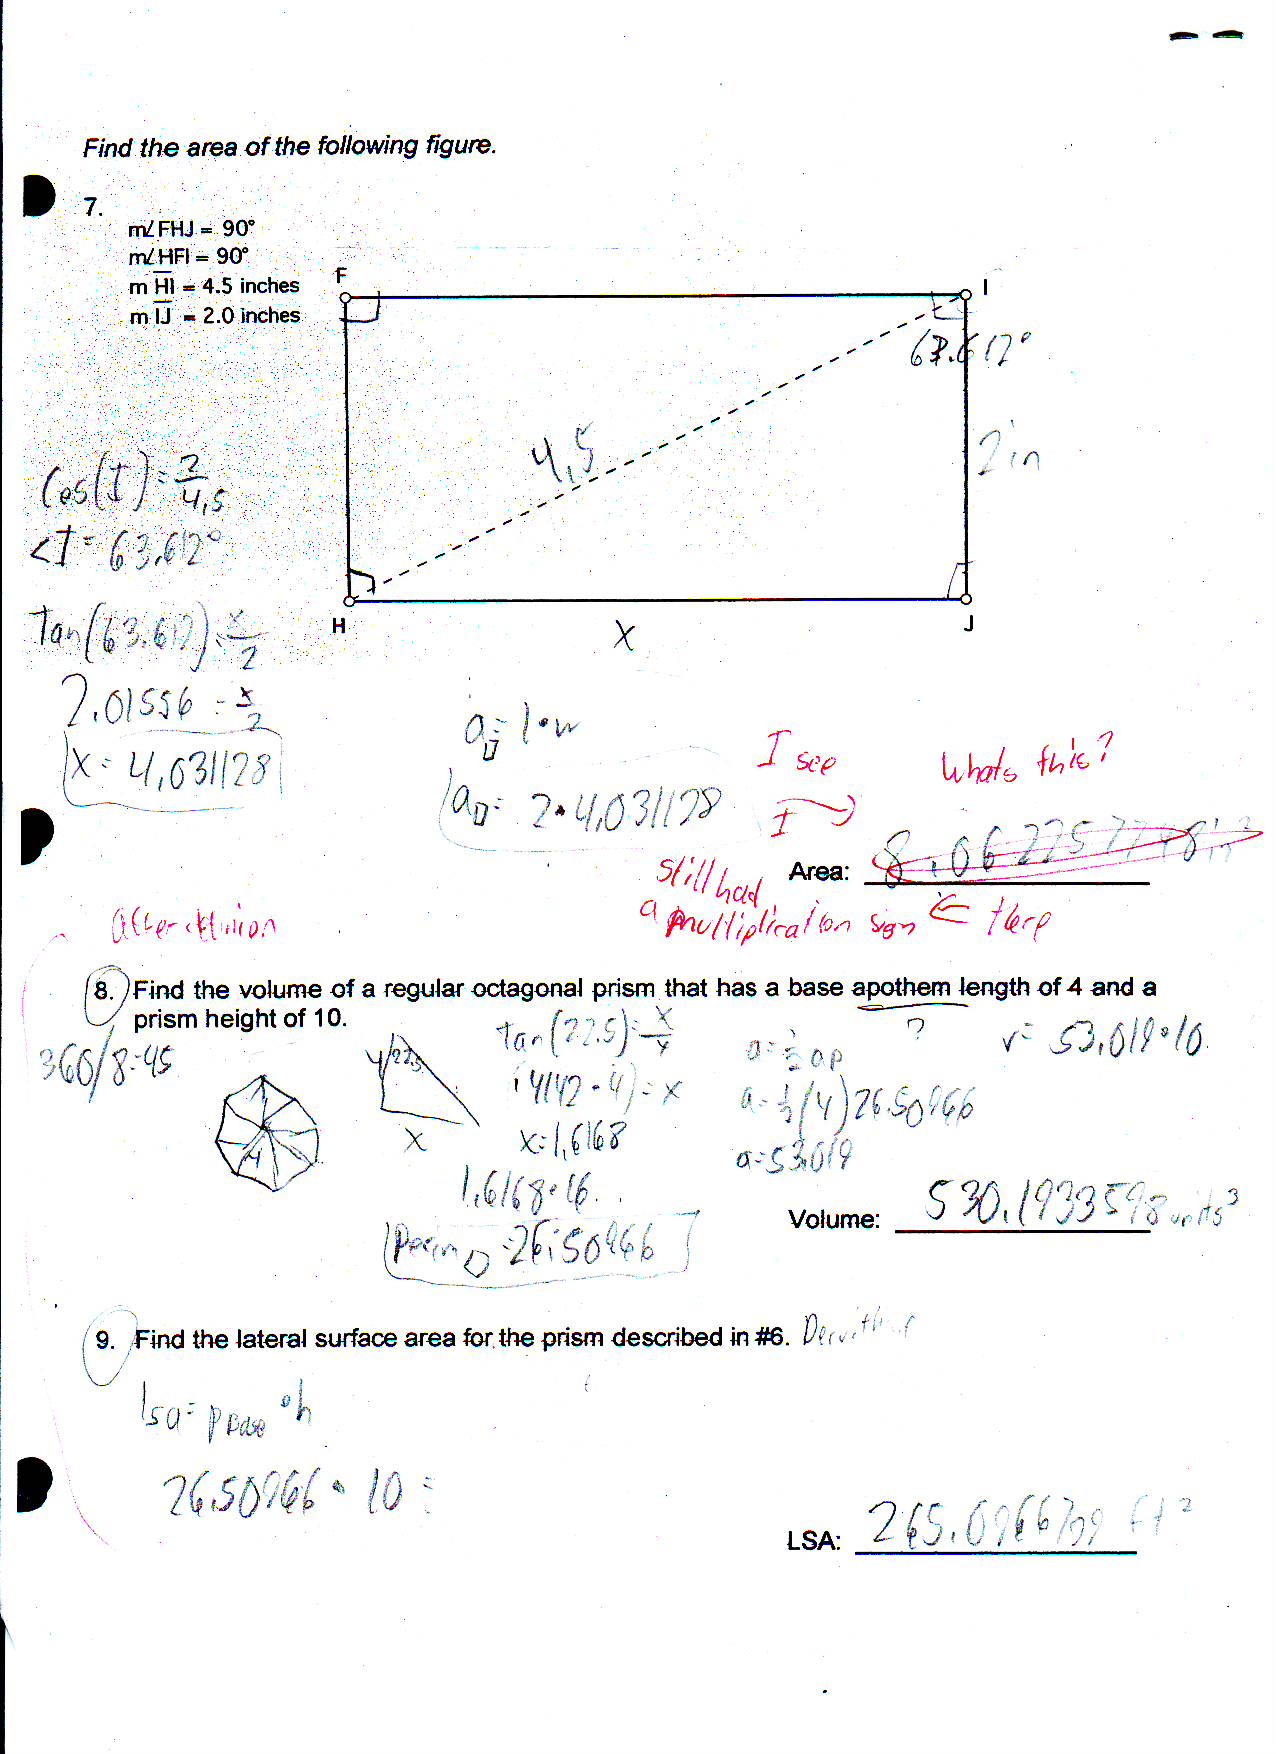 Find the area of the following figure.
7.
m∠FHJ = 90°
m∠HFI = 90°
m HI = 4.5 inches
m IJ = 2.0 inches
F
I
63.612°
4,5
2in
H
J
X
Cos(I) = 2/4,5
<I = 63.612°
tan(63.612) = x/2
2.01556 = x/2
x = 4,031128
a▯ = l•w
a▯ = 2•4,031128
I see
Whats this?
Area: 8.062257748in²
still had
a multiplication sign ← there
8. Find the volume of a regular octagonal prism that has a base apothem length of 4 and a
prism height of 10.
?
360/8=45
4
4
22.5
x
tan(22.5) = x/4
(4142 • 4) = x
x=1,6168
1.6168•16
Perim = 26.50966
a = 1/2 ap
a = 1/2 (4) 26.50966
a=53.019
v = 53.019•10
Volume: 530.1933598 units³
9. Find the lateral surface area for the prism described in #6.
lsa = p base • h
26.50966 • 10 =
LSA: 265.0966799 ft²